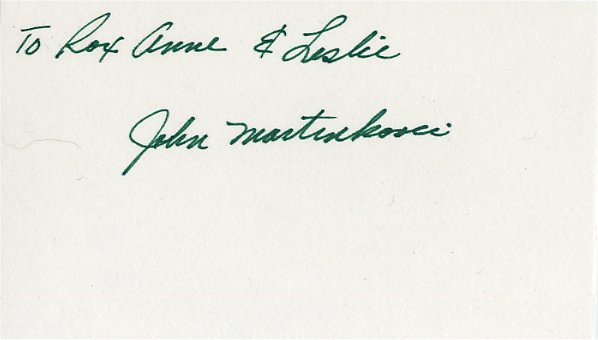 To Rox Anne & Leslie
John Martinkovic